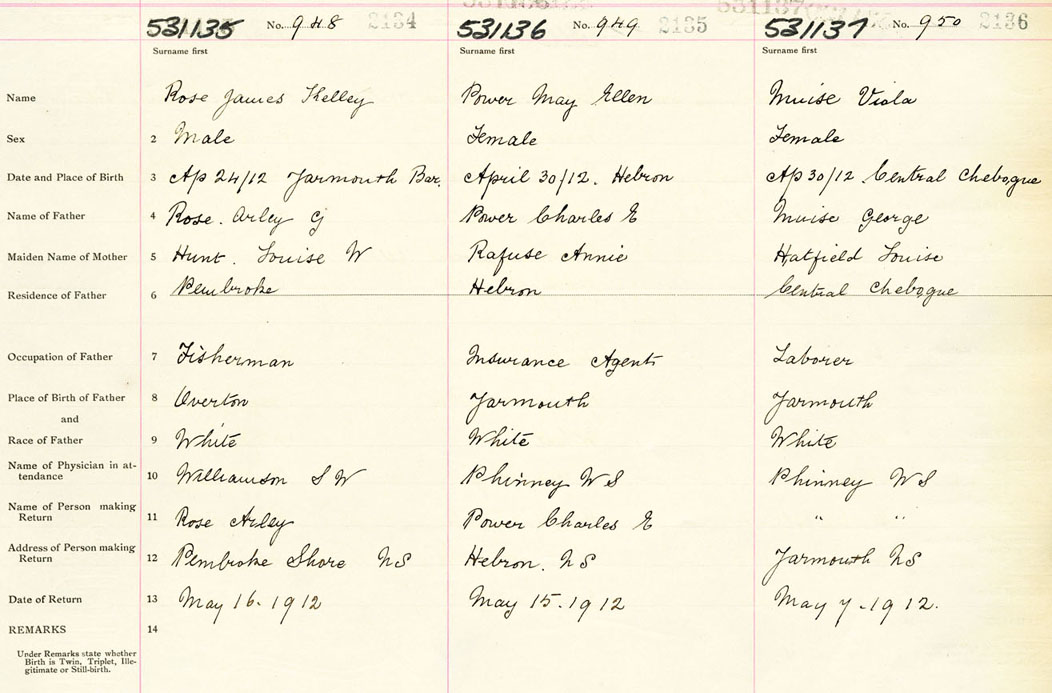 531135 No. 948 2134 531136 No. 949 2135 531137 No. 950 2136
Surname first Surname first Surname first
Name Rose James Kelley Power May Ellen Muise Viola
Sex 2 Male Female Female
Date and Place of Birth 3 Ap 24/12 Yarmouth Bar. April 30/12. Hebron Ap 30/12. Central Chebogue
Name of Father 4 Rose. Arley G Power Charles E Muise George
Maiden Name of Mother 5 Hunt. Louise W Rafuse Annie Hatfield Louise
Residence of Father 6 Pembroke Hebron Central Chebogue
Occupation of Father 7 Fisherman Insurance Agent Laborer
Place of Birth of Father 8 Overton Yarmouth Yarmouth
and
Race of Father 9 White White White
Name of Physician in at-
tendance 10 Williamson S W Phinney W S Phinney W S
Name of Person making
Return 11 Rose Arley Power Charles E " "
Address of Person making
Return 12 Pembroke Shore NS Hebron. NS Yarmouth NS
Date of Return 13 May 16.1912 May 15.1912 May 7.1912.
REMARKS 14
Under Remarks state whether
Birth is Twin, Triplet, Ille-
gitimate or Still-birth.